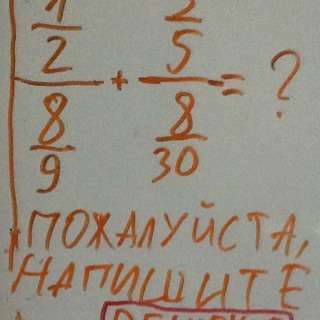 1/2 / 8/9 + 2/5 / 8/30 = ?
ПОЖАЛУЙСТА,
НАПИШИТЕ